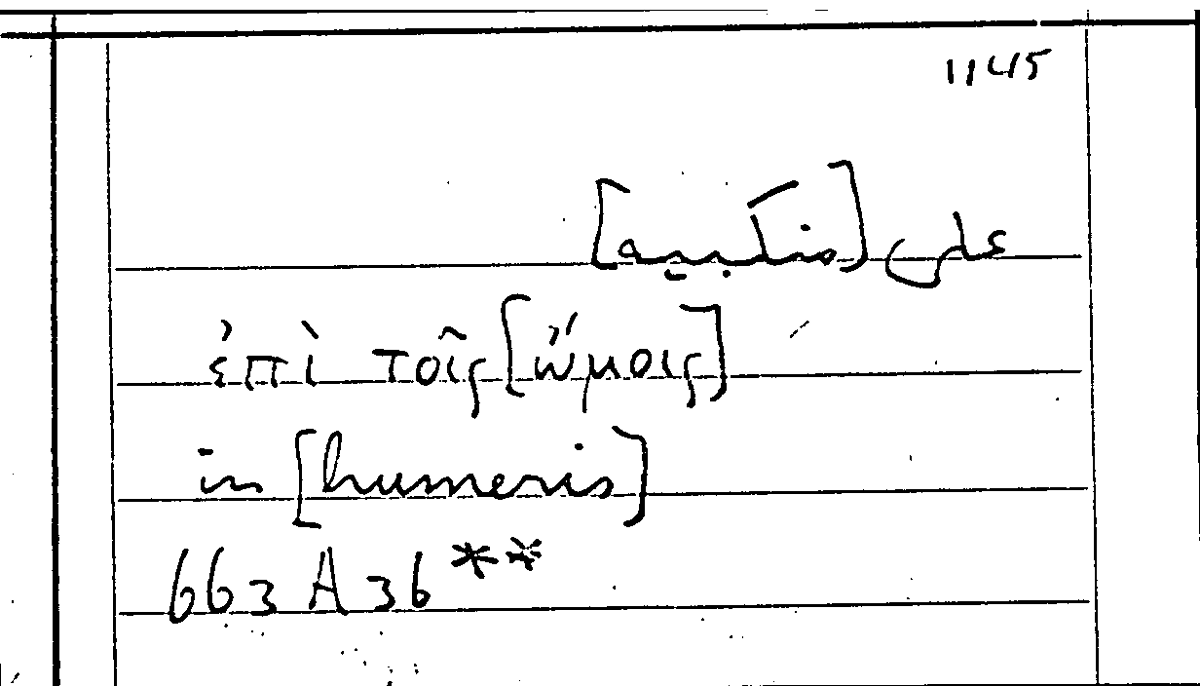 1145
على [منكبيه]
ἐπὶ τοῖς [ὤμοις]
in [humeris]
663 A 36 **